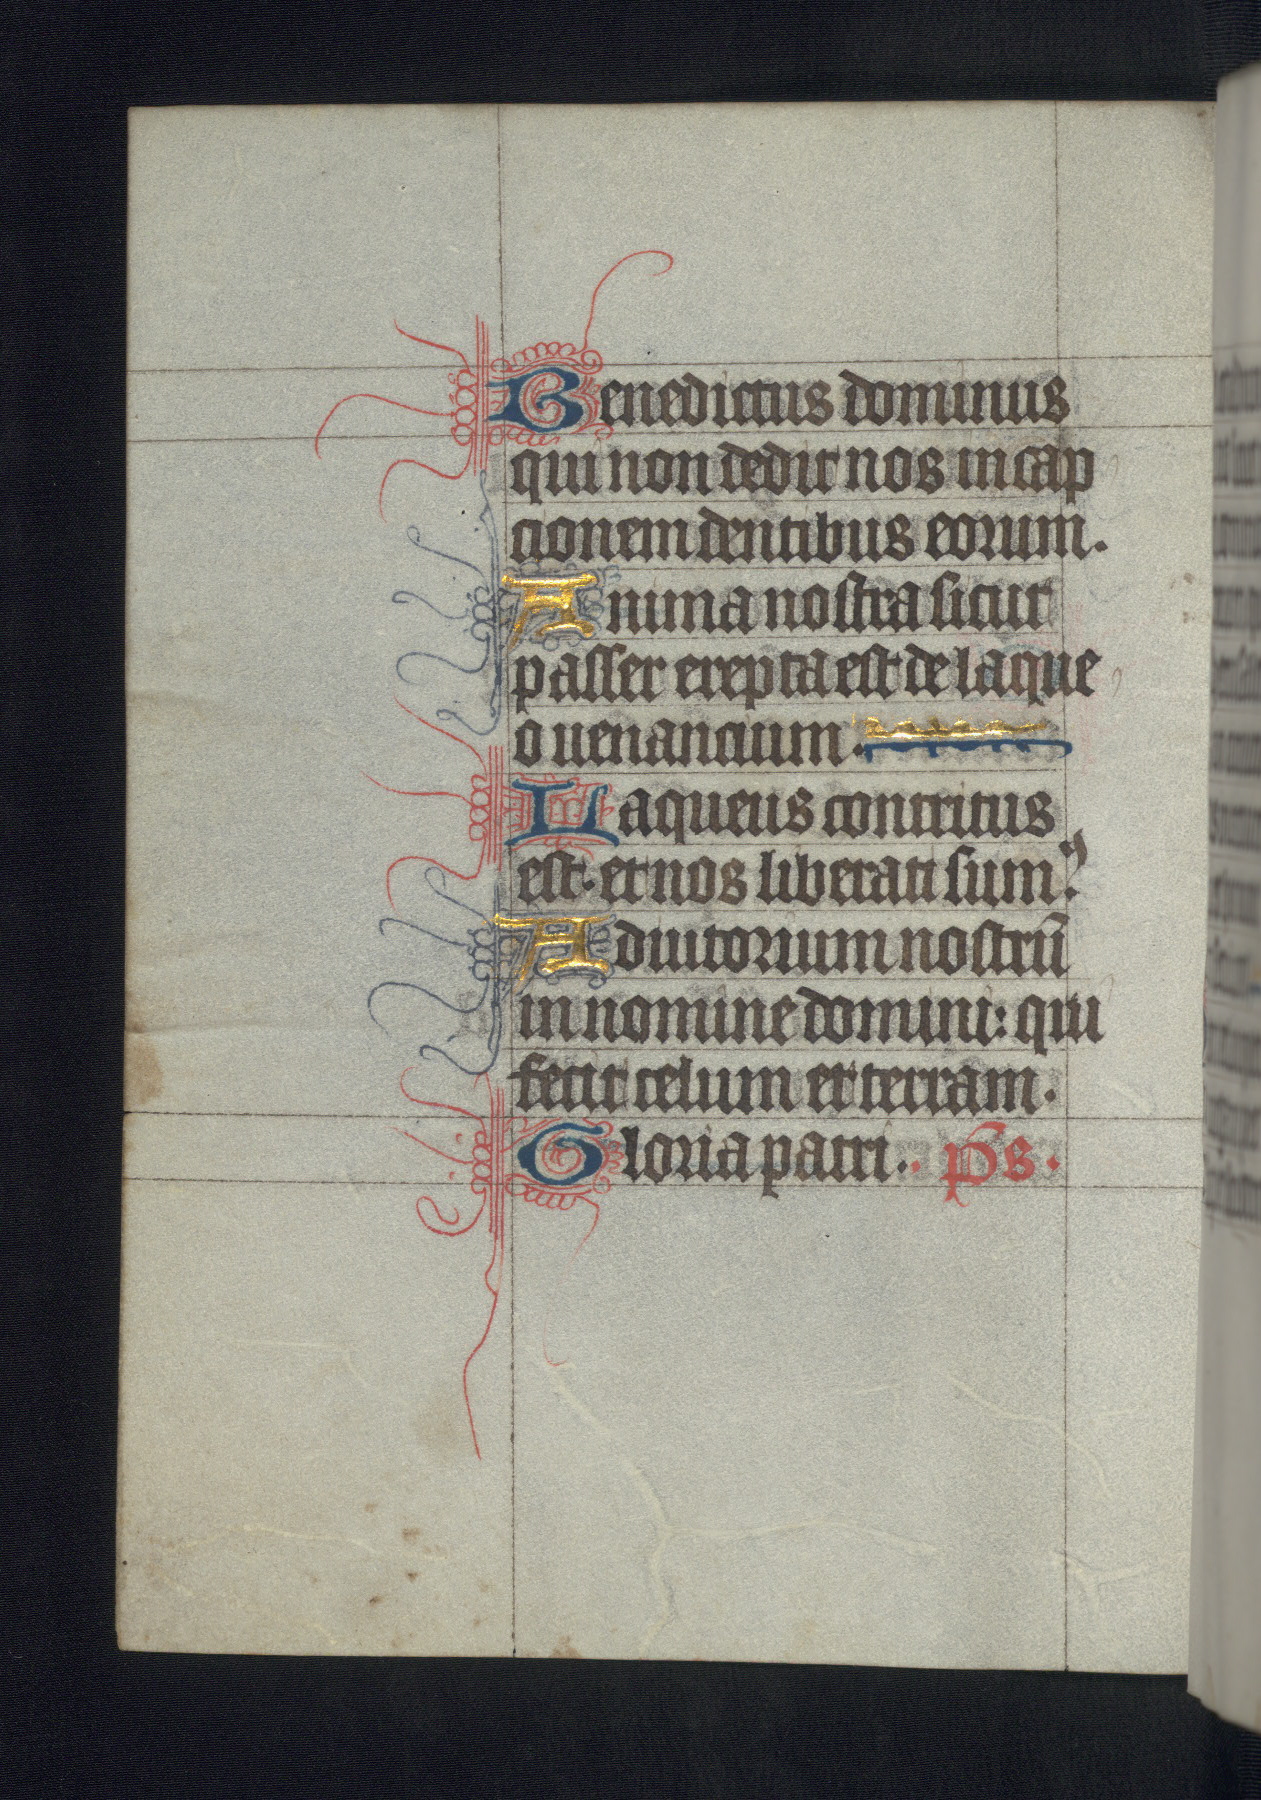 Benedictus dominus
qui non dedit nos in cap
cionem dentibus eorum.
Anima nostra sicut
passer erepta est de laque
o uenancium.
Laqueus contritus
est. et nos liberati sumꝰ.
Adiutorium nostrũ
in nomine domini: qui
fecit celum et terram.
Gloria patri.. p̃s.